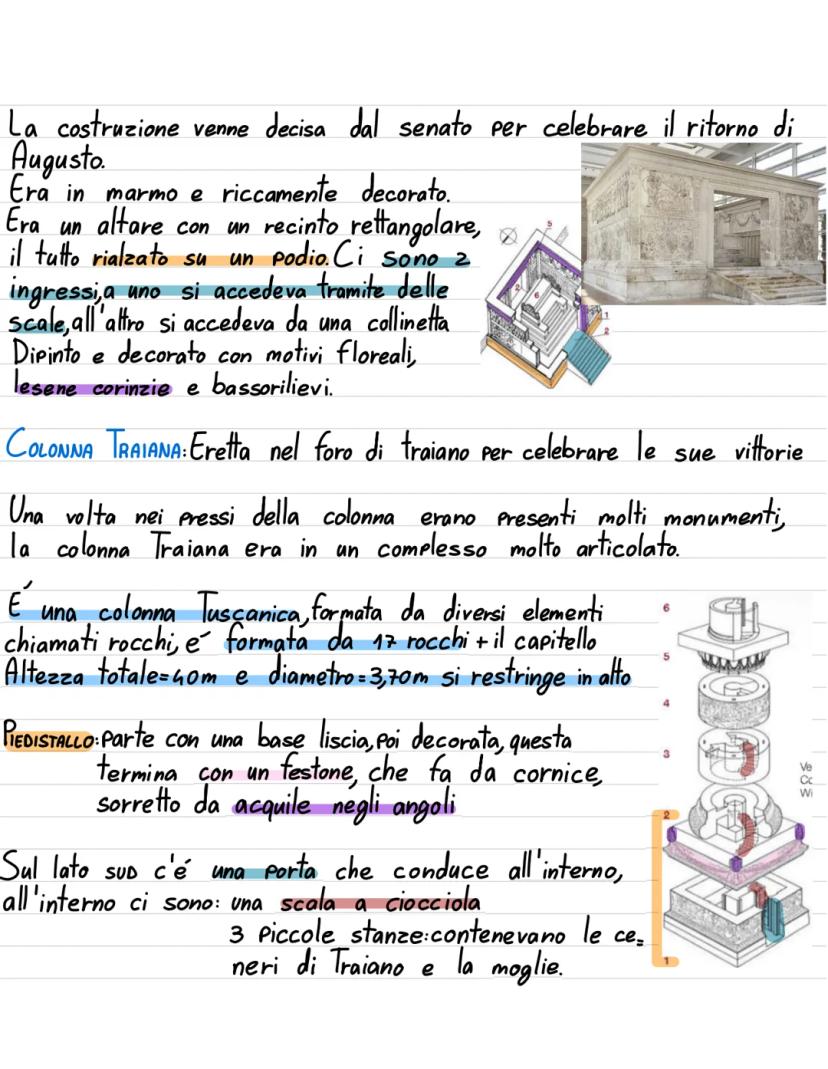 La costruzione venne decisa dal senato per celebrare il ritorno di
Augusto.
Era in marmo e riccamente decorato.
Era un altare con un recinto rettangolare,
il tutto rialzato su un podio. Ci sono 2
ingressi, a uno si accedeva tramite delle
scale, all'altro si accedeva da una collinetta
Dipinto e decorato con motivi floreali,
lesene corinzie e bassorilievi.
5
2
6
1
2
COLONNA TRAIANA: Eretta nel foro di traiano per celebrare le sue vittorie
Una volta nei pressi della colonna erano presenti molti monumenti,
la colonna Traiana era in un complesso molto articolato.
É una colonna Tuscanica, formata da diversi elementi
chiamati rocchi, é formata da 17 rocchi + il capitello
Altezza totale=40m e diametro=3,70m si restringe in alto
PIEDISTALLO: parte con una base liscia, poi decorata, questa
termina con un festone, che fa da cornice,
sorretto da acquile negli angoli
Sul lato SUD c'é una porta che conduce all'interno,
all'interno ci sono: una scala a ciocciola
3 piccole stanze: contenevano le ce=
neri di Traiano e la moglie.
6
5
4
3
2
1
Ve
Co
Wi